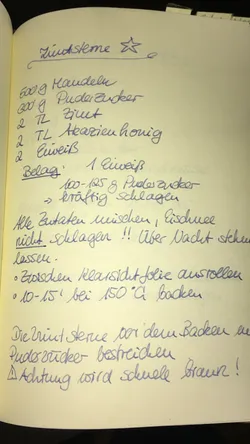 Zimtsterne ☆
500g Mandeln
300g Puderzucker
2 TL Zimt
2 TL Akazienhonig
2 Eiweiß
Belag: 1 Eiweiß
100-125 g Puderzucker
→ kräftig schlagen
Alle Zutaten mischen, Eischnee
nicht schlagen !! Über Nacht stehen
lassen.
• Zwischen Klarsichtfolie ausrollen
• 10-15' bei 150°C backen
Die Zimtsterne vor dem Backen m
Puderzucker bestreichen
⚠ Achtung wird schnell braun!